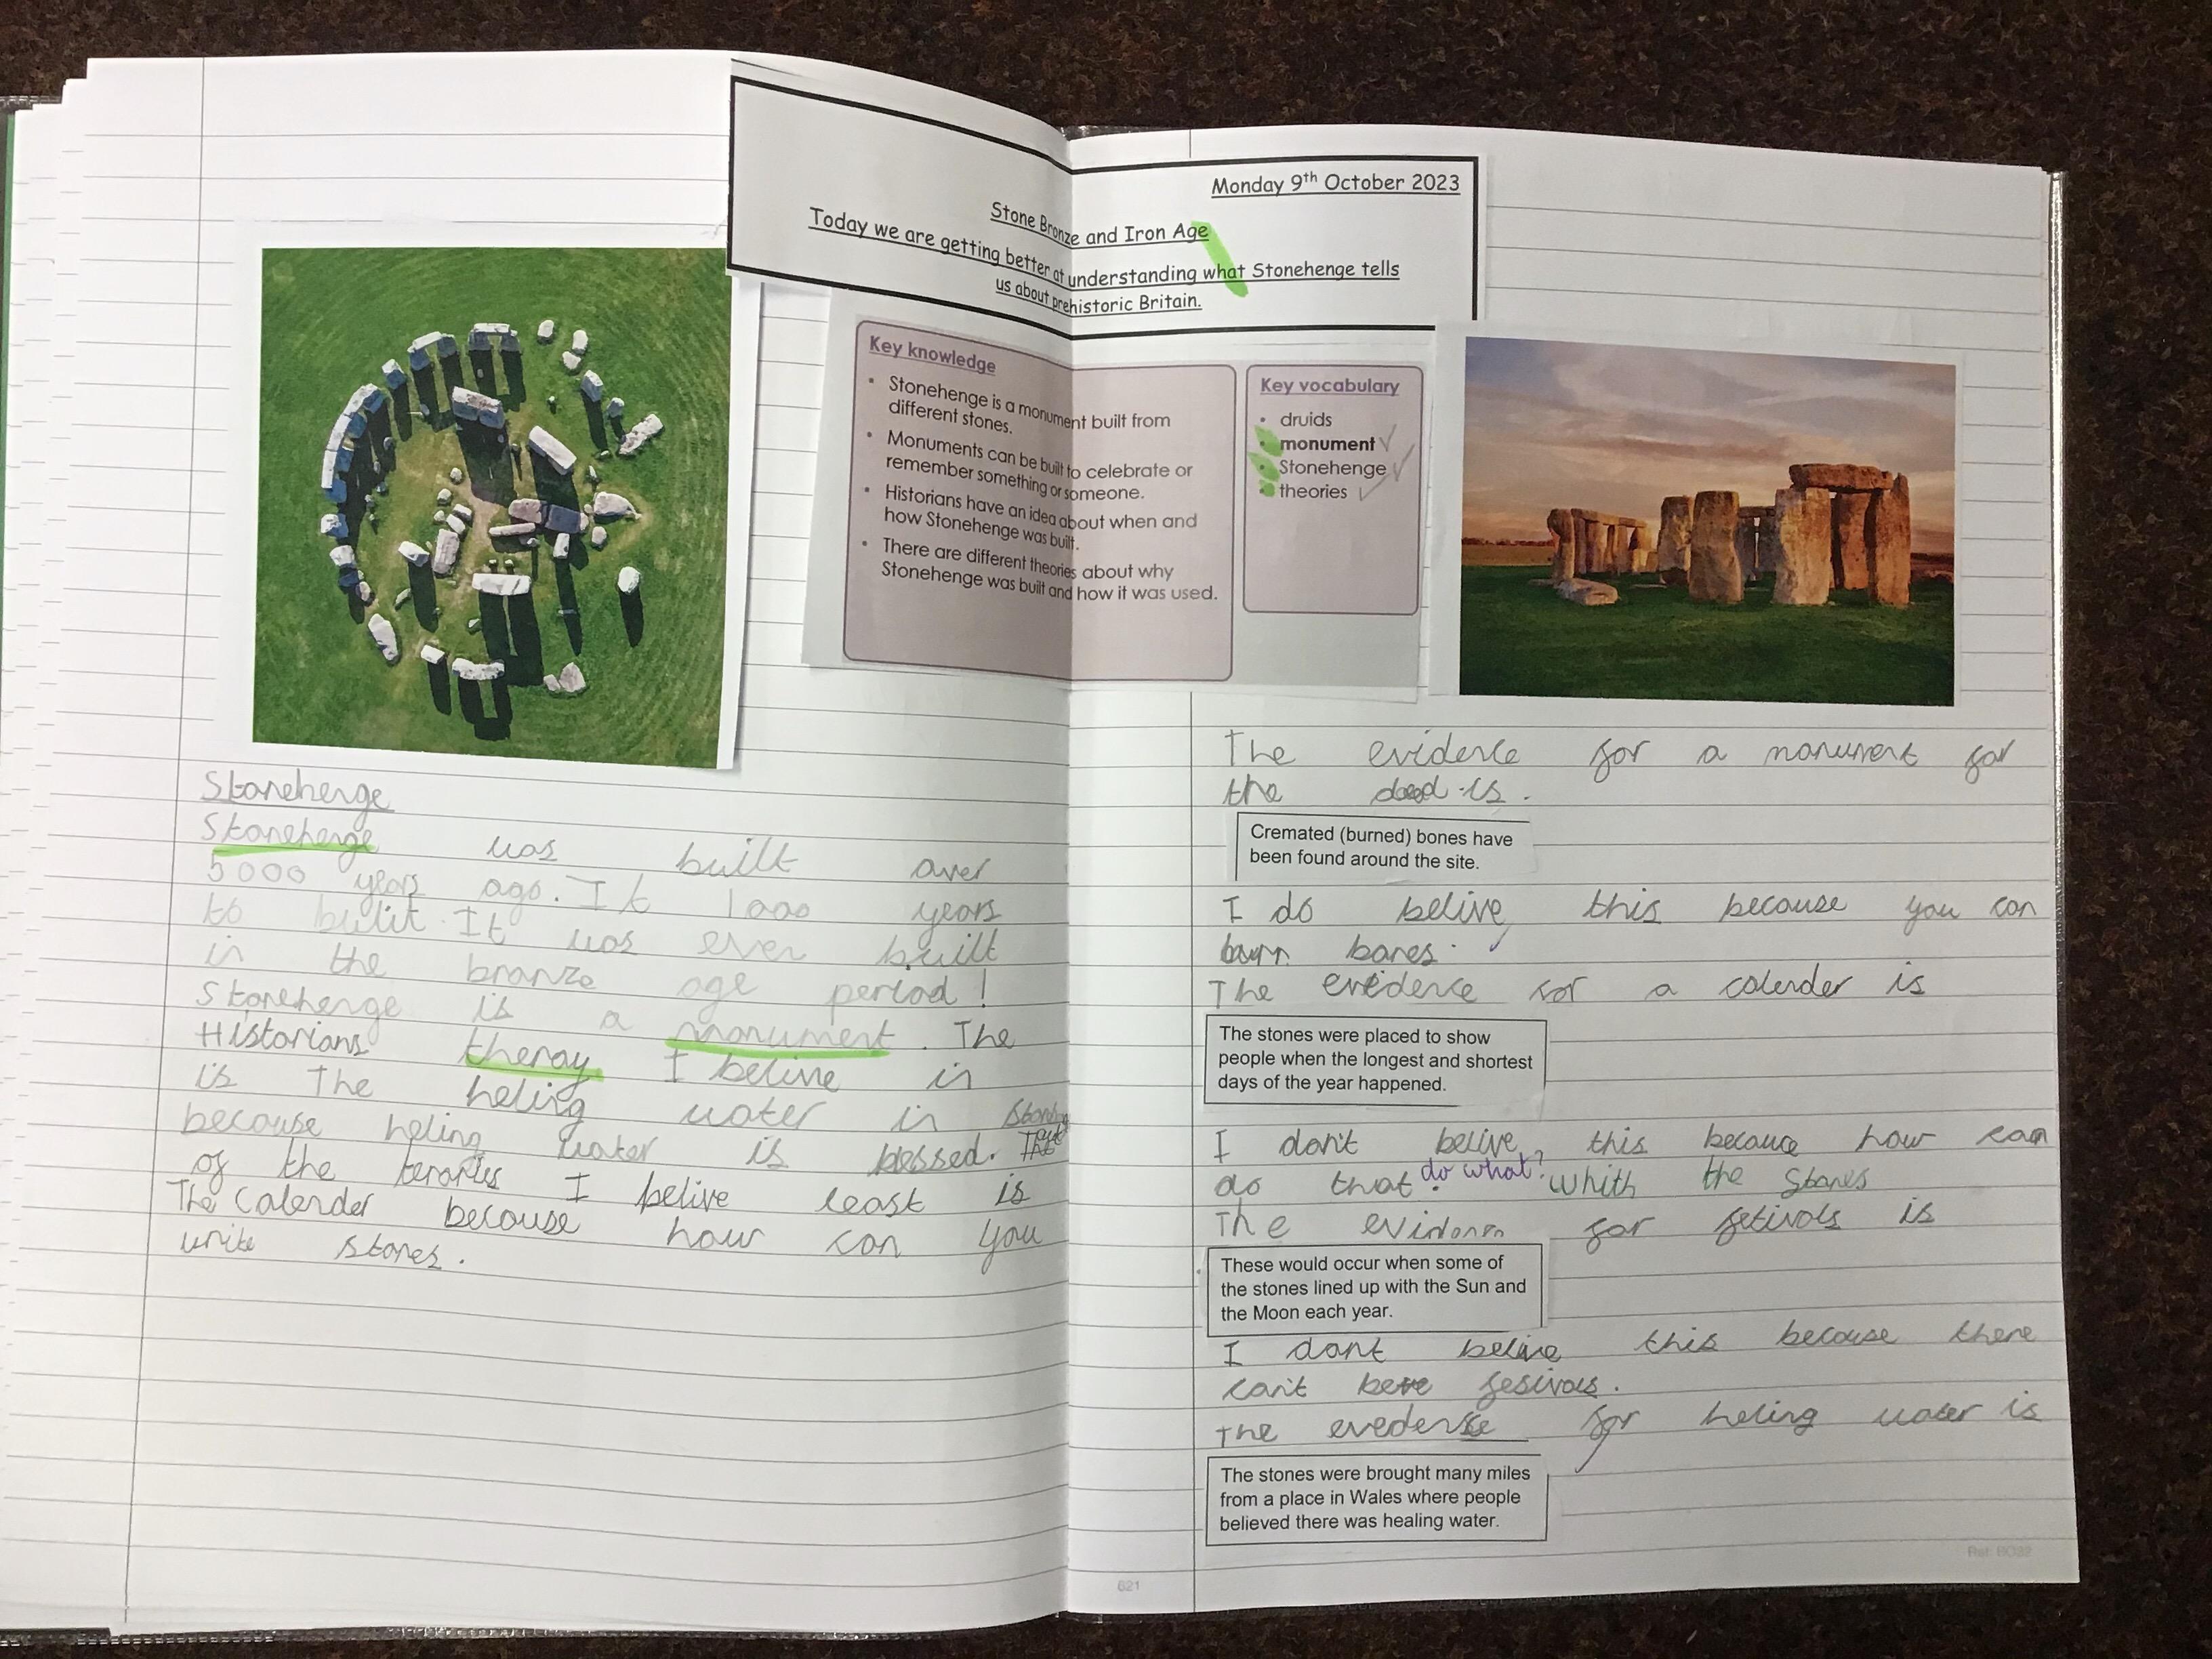 Monday 9th October 2023
Stone Bronze and Iron Age
Today we are getting better at understanding what Stonehenge tells
us about prehistoric Britain.
Key knowledge
• Stonehenge is a monument built from
different stones.
• Monuments can be built to celebrate or
remember something or someone.
• Historians have an idea about when and
how Stonehenge was built.
• There are different theories about why
Stonehenge was built and how it was used.
Key vocabulary
• druids
• monument ✓
• Stonehenge ✓
• theories ✓
Stonehenge
Stonehenge was built over
5000 years ago. It 1000 years
to builit. It was even built
in the bronze age period!
Stonehenge is a monument. The
Historians theroy I belive in
is The heling water in
because heling water is blessed. out
of the I belive least is
The Calender because how can you
write stones.
The evidence for a monument for
the dead is.
Cremated (burned) bones have
been found around the site.
I do belive this because you can
burn bones. ✓
The evidence for a calender is
The stones were placed to show
people when the longest and shortest
days of the year happened.
I don't belive this because how can
do that do what? whith the stones
The for fetivals is
These would occur when some of
the stones lined up with the Sun and
the Moon each year.
I dont belive this because there
can't be fesivals.
The for heling water is
The stones were brought many miles
from a place in Wales where people
believed there was healing water.
621
Ref: BO32